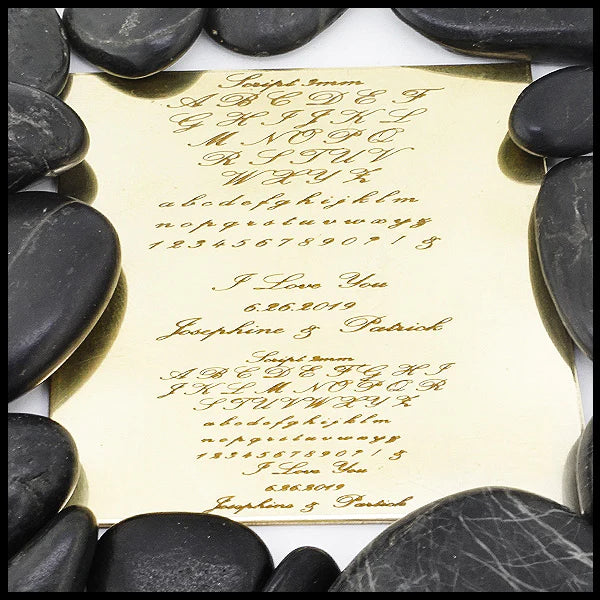 Script 3mm
A B C D E F
G H I J K L
M N O P Q
R S T U V
W X Y Z
a b c d e f g h i j k l m
n o p q r s t u v w x y z
1 2 3 4 5 6 7 8 9 0 ? ! &
I Love You
6.26.2019
Josephine & Patrick
Script 2mm
A B C D E F G H I
J K L M N O P Q R
S T U V W X Y Z
a b c d e f g h i j k l m
n o p q r s t u v w x y z
1 2 3 4 5 6 7 8 9 0 ? ! &
I Love You
6.26.2019
Josephine & Patrick